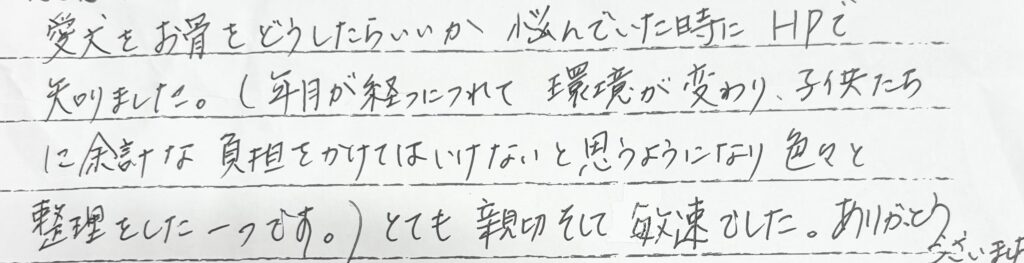 愛犬をお骨をどうしたらいいか 悩んでいた時に HPで
知りました。(年月が経つにつれて 環境が変わり、子供たち
に余計な負担をかけてはいけないと思うようになり色々と
整理をした一つです。)とても親切そして敏速でした。ありがとう
ございました